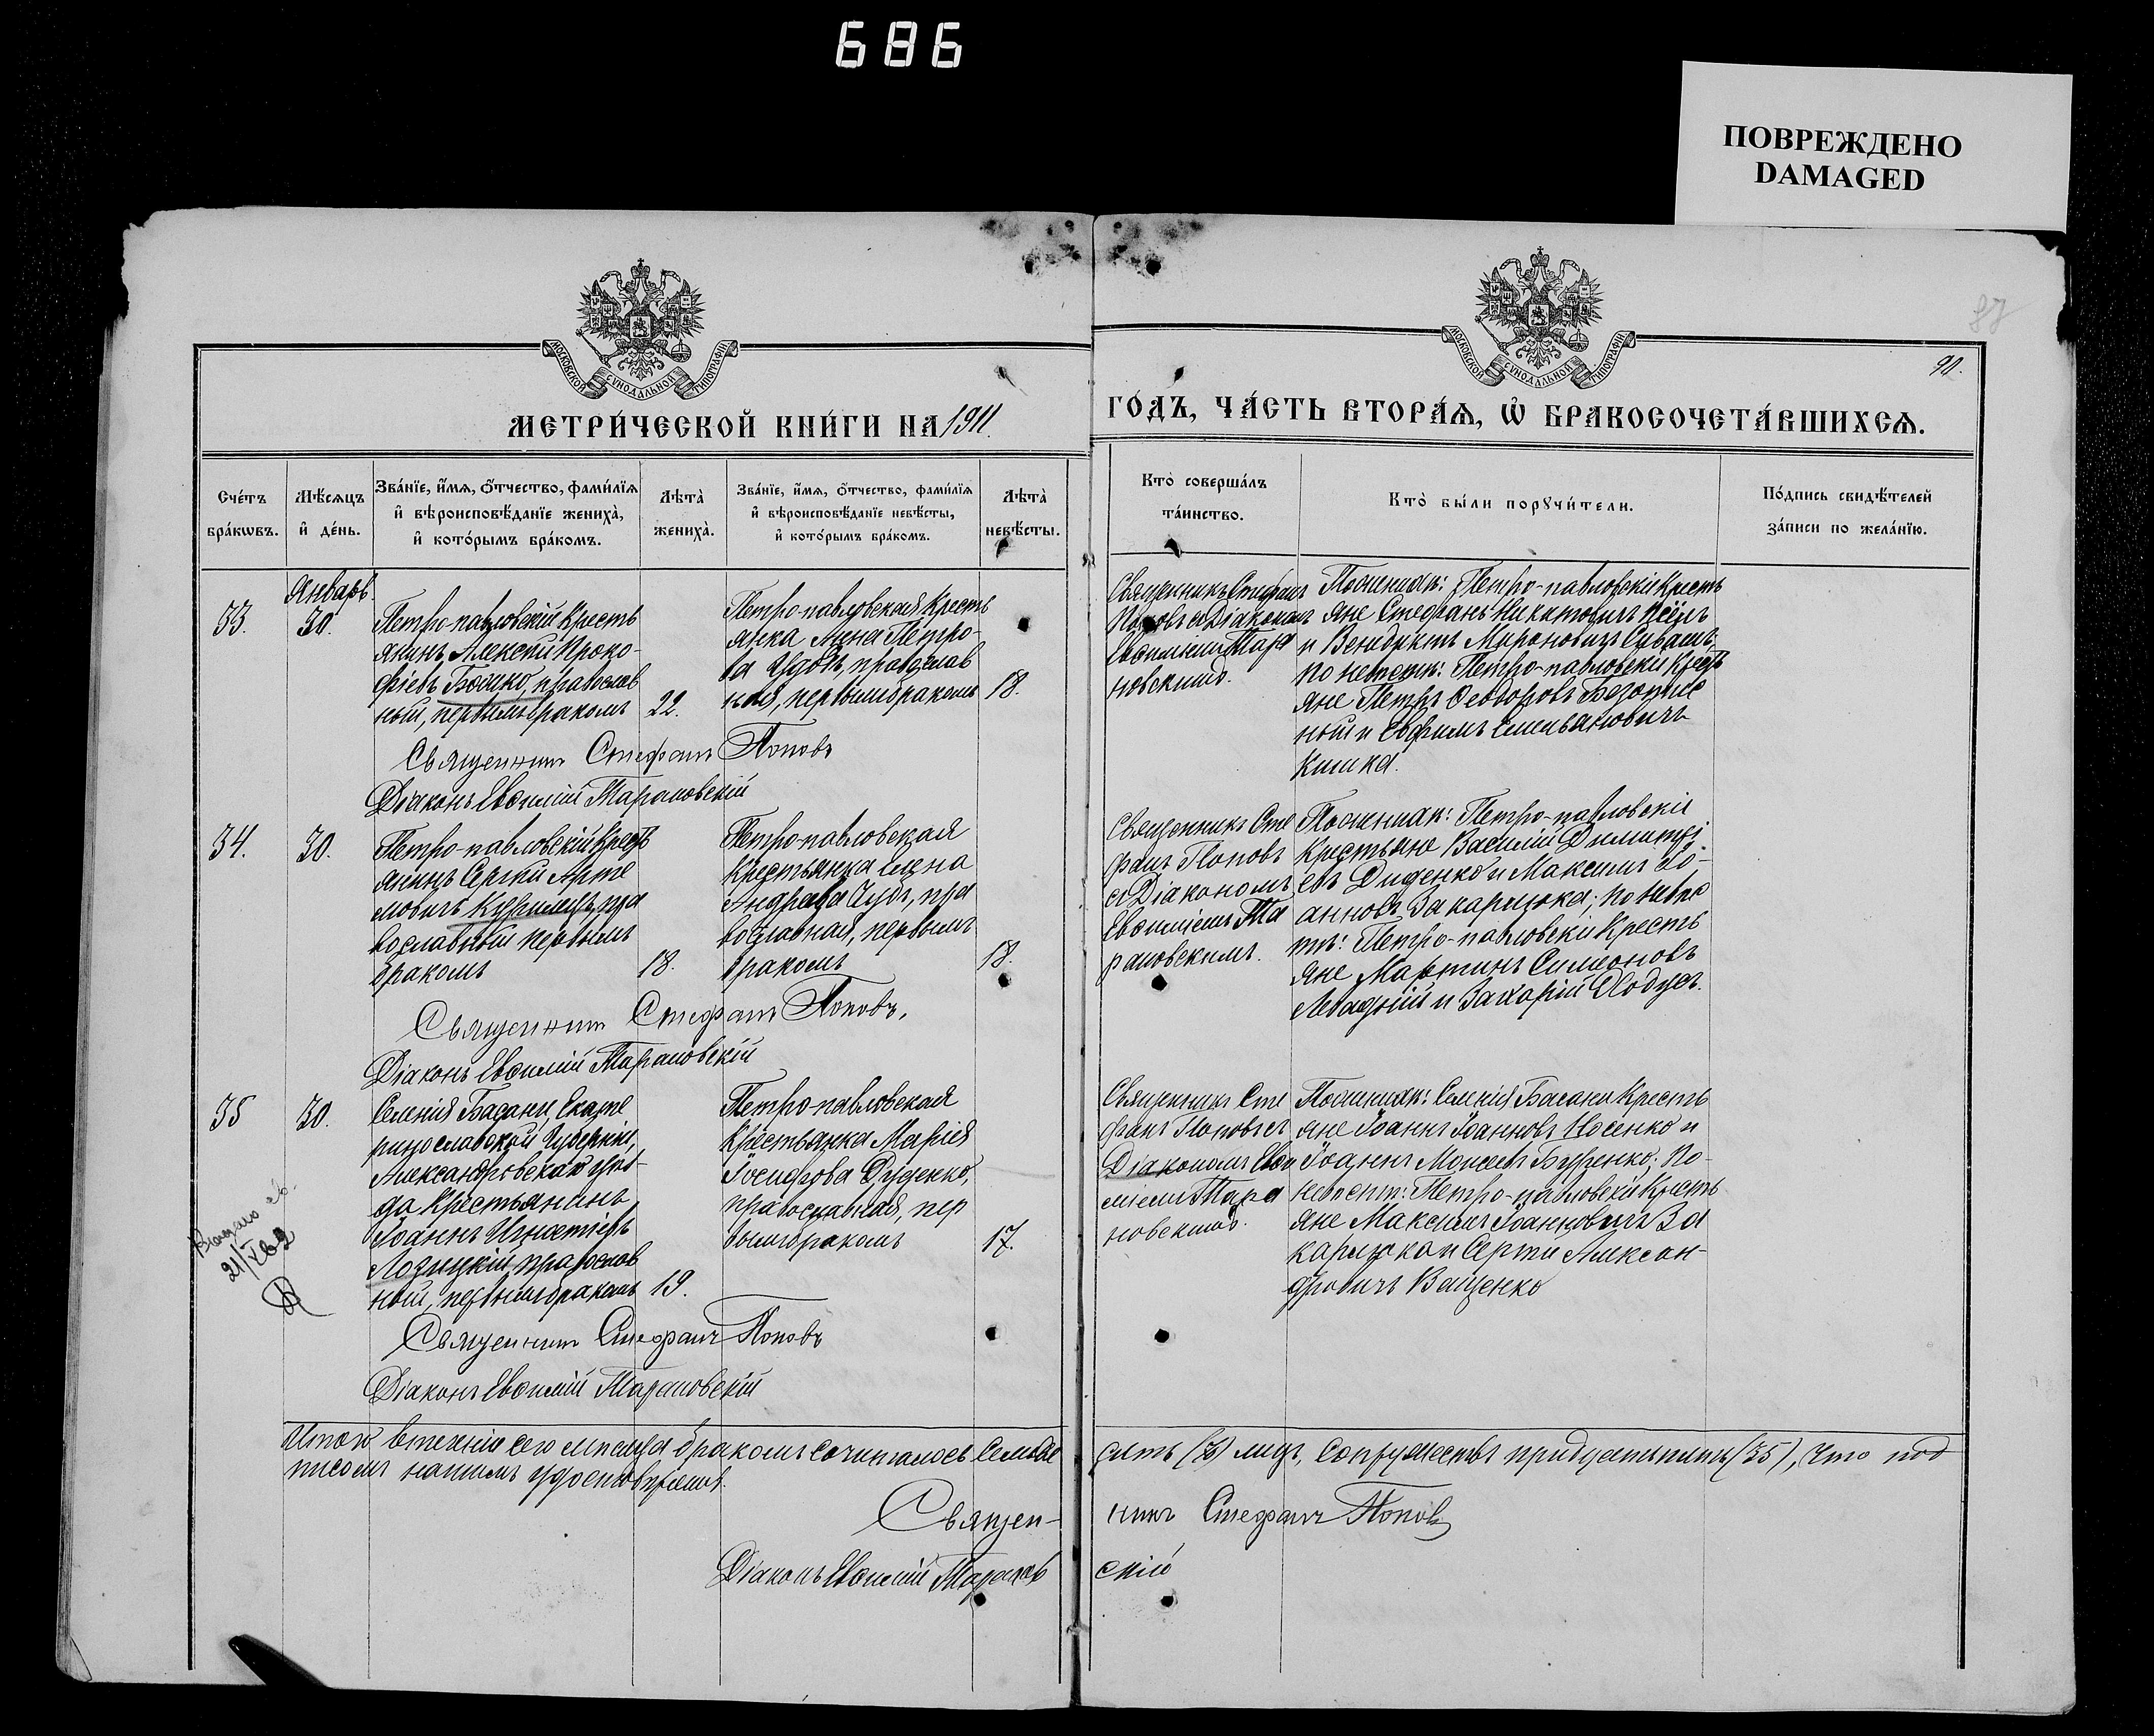 686
ПОВРЕЖДЕНО
DAMAGED
87
90.
МОСКОВСКОЙ СѴНОДАЛЬНОЙ ТИПОГРАФІИ
МОСКОВСКОЙ СѴНОДАЛЬНОЙ ТИПОГРАФІИ
МЕТРИ́ЧЕСКОЙ КНИ́ГИ НА 1911.
ГО́ДЪ, ЧА́СТЬ ВТОРА́Ѧ, Ѽ БРАКОСОЧЕТА́ВШИХСѦ.
Сче́тъ
бра́кѡвъ.
Мѣ́сѧцъ
и҆ де́нь.
Зва́нїе, и҆́мѧ, ѻ҆́тчество, фами́лїѧ
и҆ вѣроисповѣ́данїе жениха̀,
и҆ кото́рымъ бра́комъ.
Лѣта̀
жениха̀.
Зва́нїе, и҆́мѧ, ѻ҆́тчество, фами́лїѧ
и҆ вѣроисповѣ́данїе невѣ́сты,
и҆ кото́рымъ бра́комъ.
Лѣта̀
невѣ́сты.
Кто̀ соверша́лъ
та́инство.
Кто̀ бы́ли порꙋчи́тели.
По́дпись свидѣ́телей
за́писи по жела́нїю.
Январь.
33.
30.
Петро-павловскій Кресть
янинъ Алексѣй Проко-
фіевъ Бойко, православ
ный, первымъ бракомъ
22.
Петро-павловская Кресть
янка Анна Петро-
ва православ
ная, первымъ бракомъ
18.
Священникъ Стефанъ
Поповъ съ Діакономъ
Евѳиміемъ Тара
новскимъ.
По женихѣ: Петро-павловскіе Кресть
яне Стефанъ Никитовичъ
и Венедиктъ Мироновичъ Сиваш,
по невѣстѣ: Петро-павловскіе Кресть
яне Петръ Ѳеодоровъ
ный и Ефимъ Емельяновичъ
Кишка.
Священникъ Стефанъ Поповъ
Діаконъ Евѳимій Тарановскій
34.
30.
Петро-павловскій Кресть
янинъ Сергій Арте
мовичъ пра
вославный первымъ
бракомъ
18.
Петро-павловская
Крестьянка Елена
Андреева пра
вославная, первымъ
бракомъ
18.
Священникъ Сте
фанъ Поповъ
съ Діакономъ
Евѳиміемъ Та
рановскимъ.
По женихѣ: Петро-павловскіе
Крестьяне Василій Димитрі
евъ Диденко и Максимъ Іо-
анновъ Закарлюка; по невѣс
тѣ: Петро-павловскіе Кресть
яне Мартинъ Симеоновъ
Левадній и Захарій
Священникъ Стефанъ Поповъ.
Діаконъ Евѳимій Тарановскій
35
30.
Селенія Басани, Екате
ринославской Губерніи,
Александровскаго уѣз-
да Крестьянинъ
Іоаннъ Игнатіевъ
Лозицкій, православ
ный, первымъ бракомъ
19.
Петро-павловская
Крестьянка Марія
Іосифова Диденко,
православная, пер
вымъ бракомъ
17.
Священникъ Сте
фанъ Поповъ съ
Діакономъ Евѳи
міемъ Тара
новскимъ.
По женихѣ: Селенія Басани Кресть
яне Іоаннъ Іоанновъ Носенко и
Іоаннъ Моисеевъ по
невѣстѣ: Петро-павловскіе Кресть
яне Максимъ Іоанновичъ За
карлюка и Сергій Алексан-
дровичъ Ващенко
Священникъ Стефанъ Поповъ
Діаконъ Евѳимій Тарановскій
Итого въ теченіи сего мѣсяца бракомъ сочеталось Семьде
сятъ (70) лицъ, супружествъ тридцать пять (35), что под
писомъ нашимъ удостовѣряемъ.
Священ-
никъ Стефанъ Поповъ
Діаконъ Евѳимій Таранов
скій